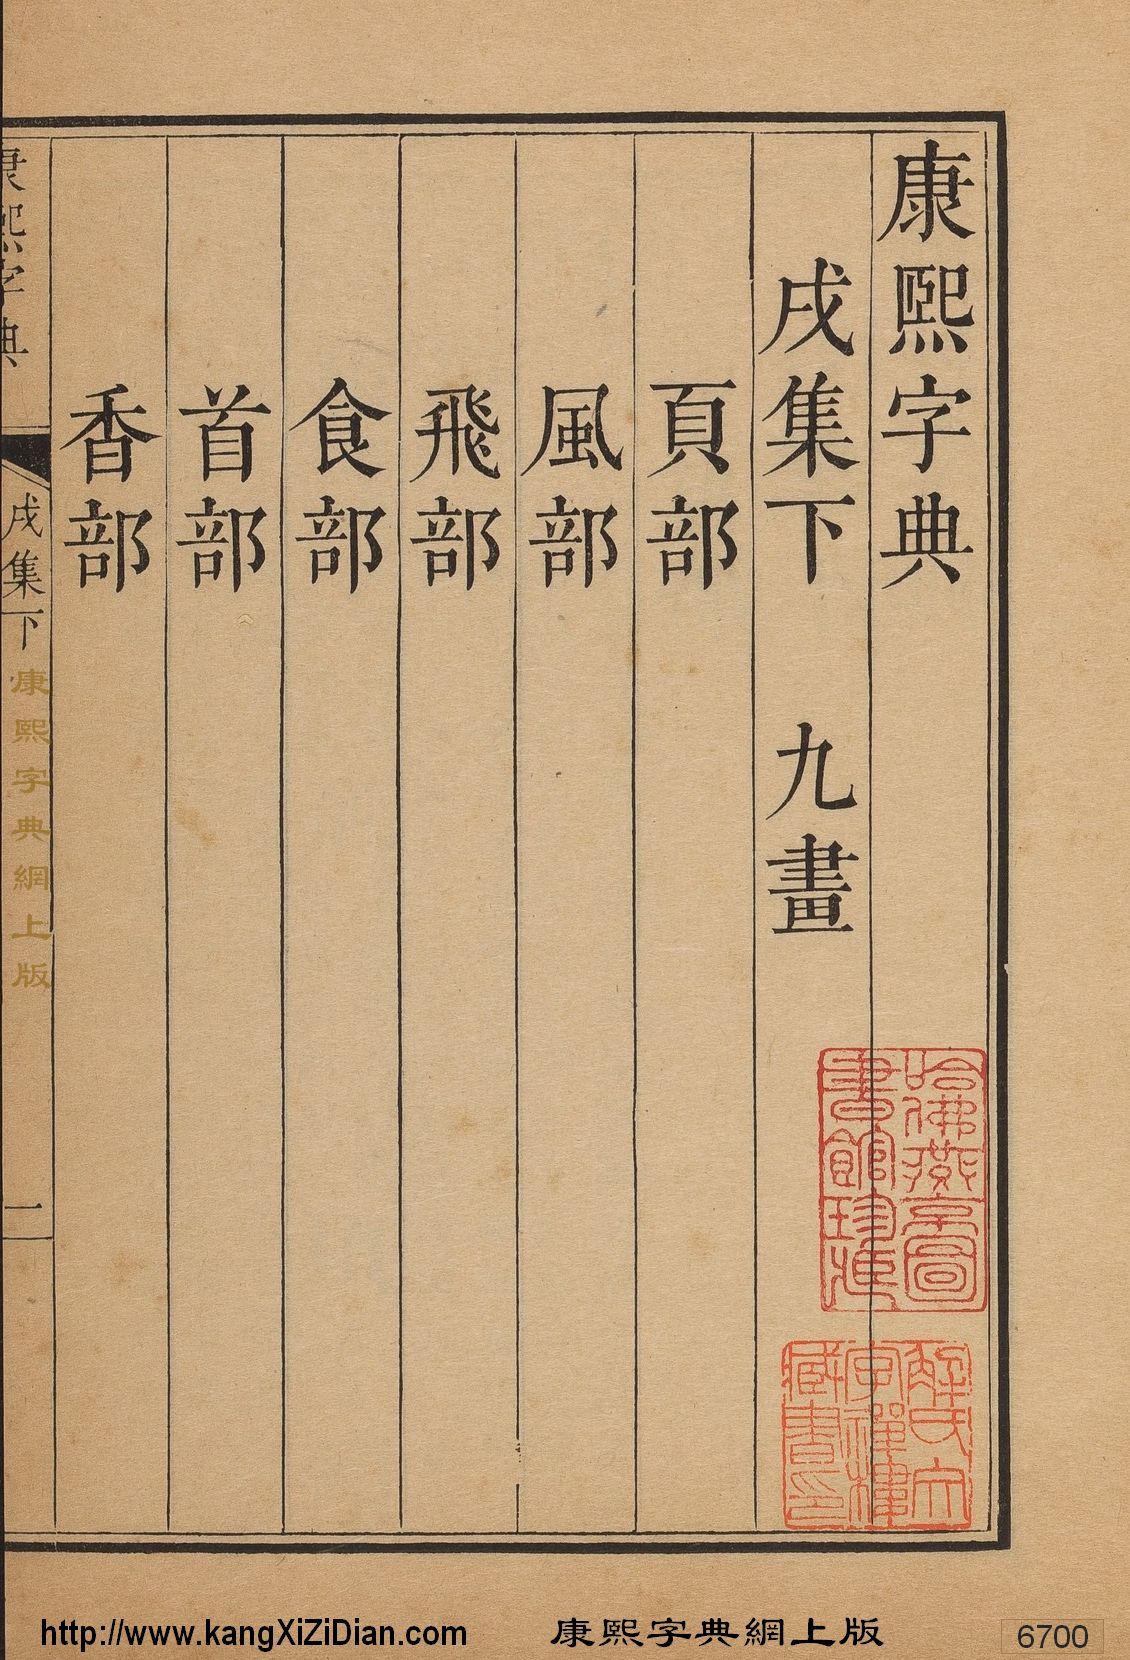 康熙字典
戌集下 九畫
頁部
風部
飛部
食部
首部
香部
康熙字典
戌集下
一
康熙字典網上版
哈佛燕京圖
書館珍藏
藏書印
http://www.kangXiZiDian.com
康熙字典網上版
6700